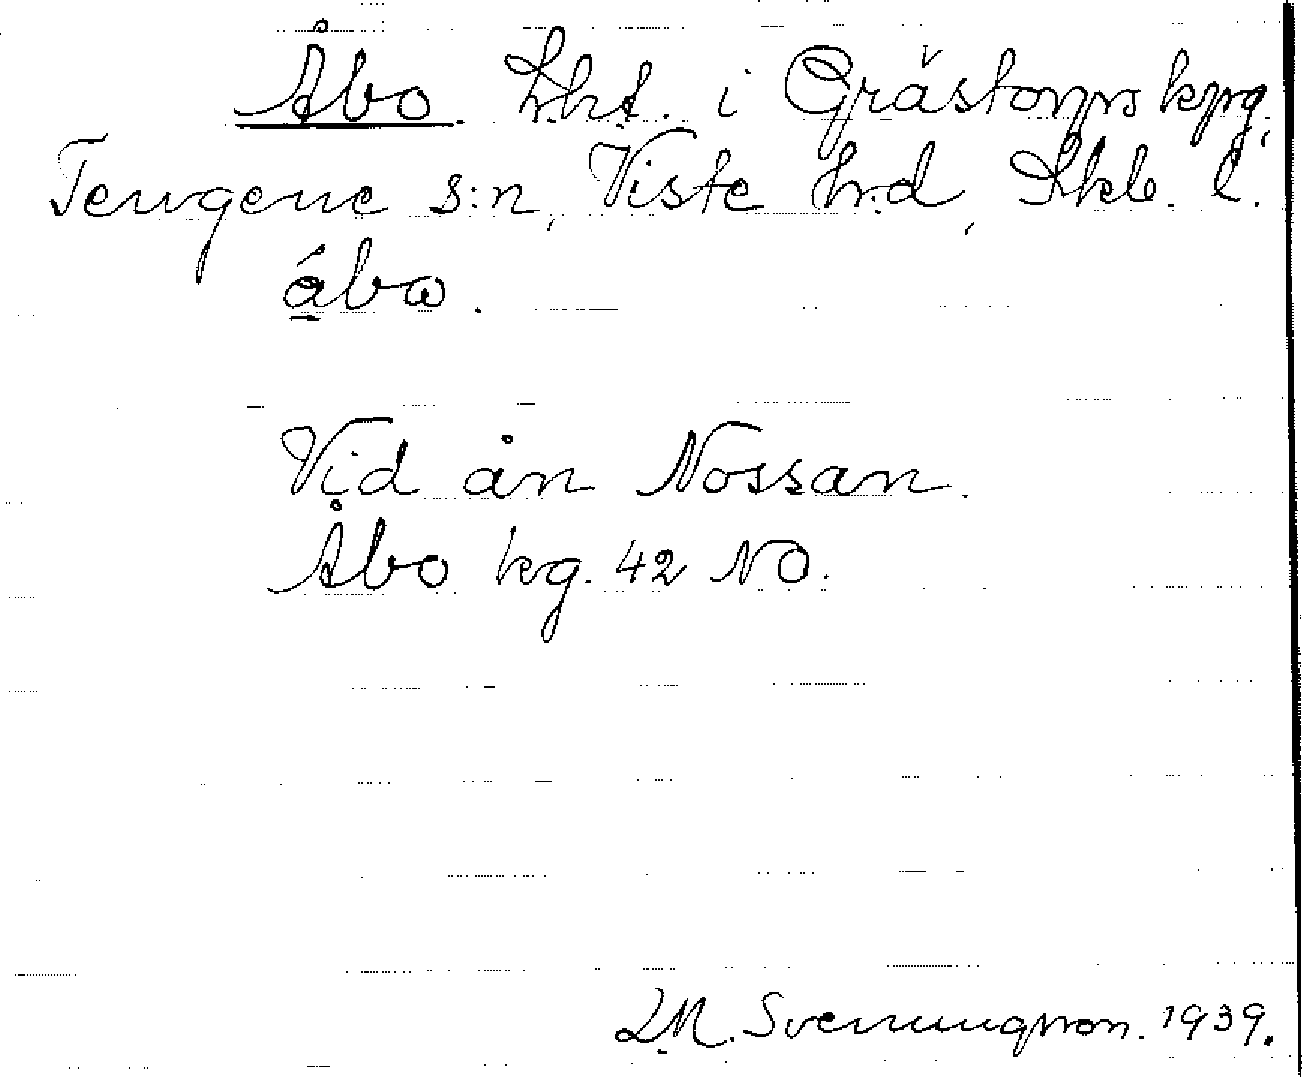 Åbo. Lht. i Grästorps kpg,
Tengene s:n, Viste hrd, Skb. l.
åbω.
Vid ån Nossan.
Åbo kg. 42 NO.
L.M. Svenungsson. 1939.